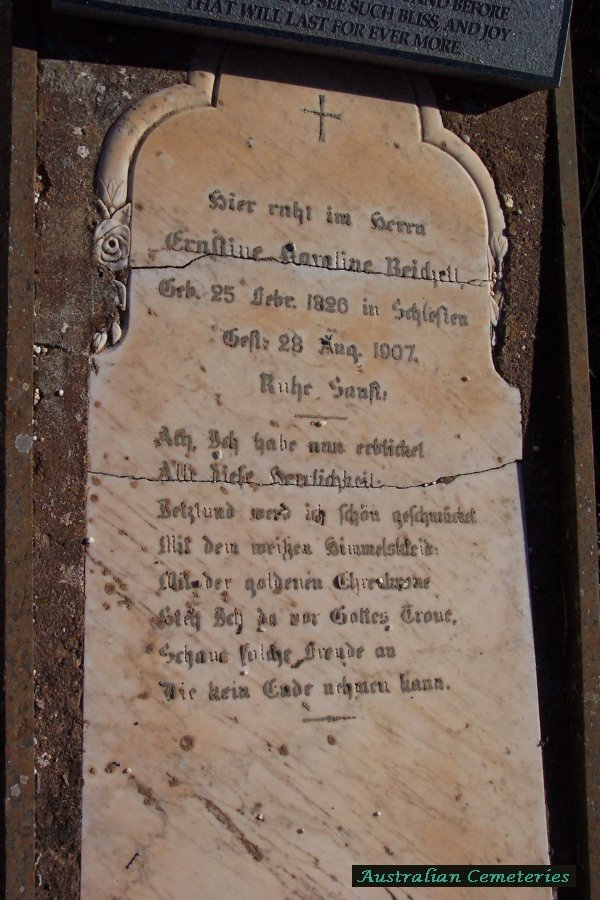 AND BEFORE
AND SEE SUCH BLISS, AND JOY
THAT WILL LAST FOR EVER MORE
Hier ruht im Herrn
Ernstine Karoline Reichelt
Geb. 25 Febr. 1826 in Schlesien
Gest: 28 Aug. 1907.
Ruhe Sanft:
Ach, Ich habe nun erblicket
Alle diese Herrlichkeit:
Jetztund werd ich schön geschmücket
Mit dem weißen Himmelskleid:
Mit der goldenen Ehrenkrone
Steh Ich da vor Gottes Trone,
Schaue solche Freude an
Die kein Ende nehmen kann.
Australian Cemeteries